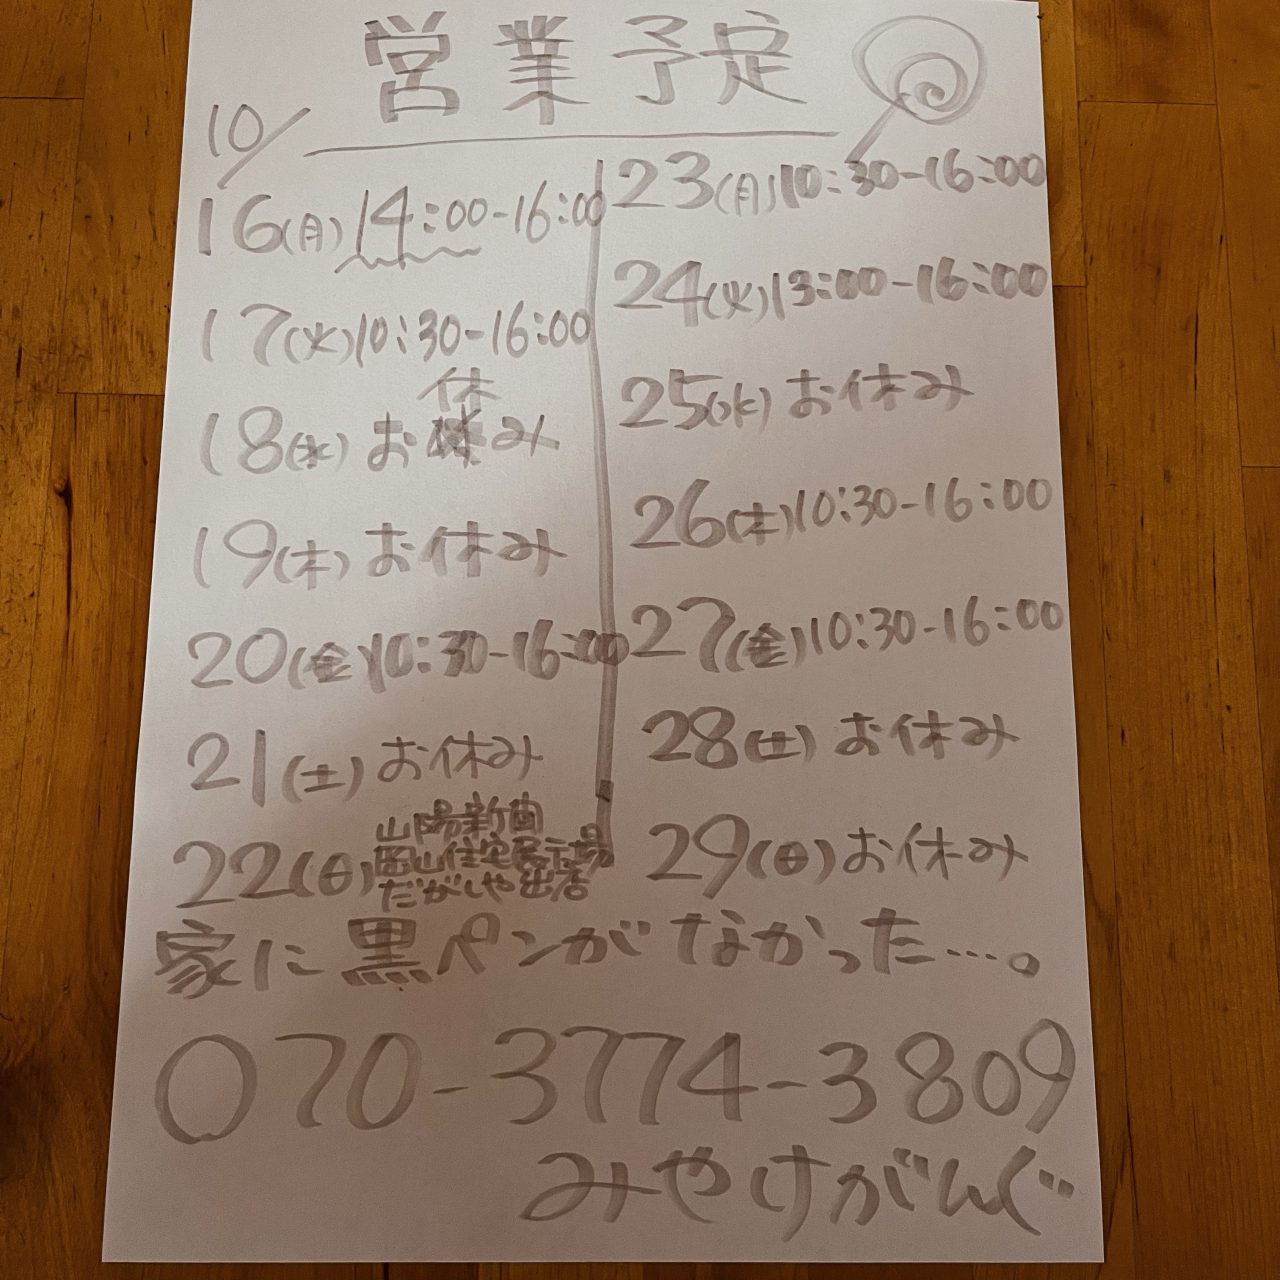 営業予定
10/
16(月)14:00-16:00
17(火)10:30-16:00
18(水)お休み
19(木)お休み
20(金)10:30-16:00
21(土)お休み
22(日)山陽新聞
岡山住宅展示場
だがしや出店
23(月)10:30-16:00
24(火)13:00-16:00
25(水)お休み
26(木)10:30-16:00
27(金)10:30-16:00
28(土)お休み
29(日)お休み
家に黒ペンがなかった…。
070-3774-3809
みやけがんぐ